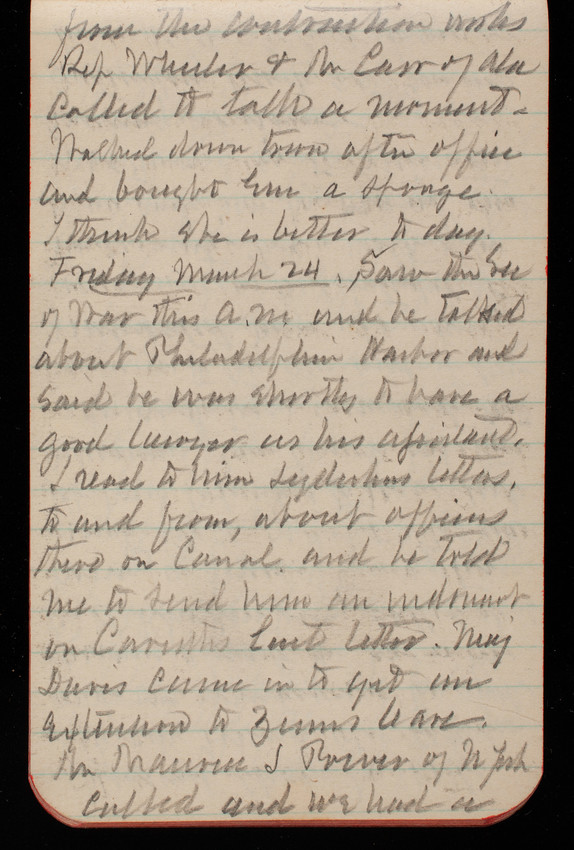 from the construction works
Rep Wheeler & Mr Carr of Ala
called to talk a moment -
Walked down town after office
and bought Em a sponge.
I think she is better to day.
Friday March 24. Saw the Sec
of War this A.M. and he talked
about Philadelphia Harbor and
said he was shortly to have a
good lawyer as his assistant.
I read to him letters,
to and from, about officers
there on Canal and he told
me to send him an indorsmt
on letter. Maj
Davis came in to get an
extension to leave.
Mr Maurice S Power of N York
called and we had a